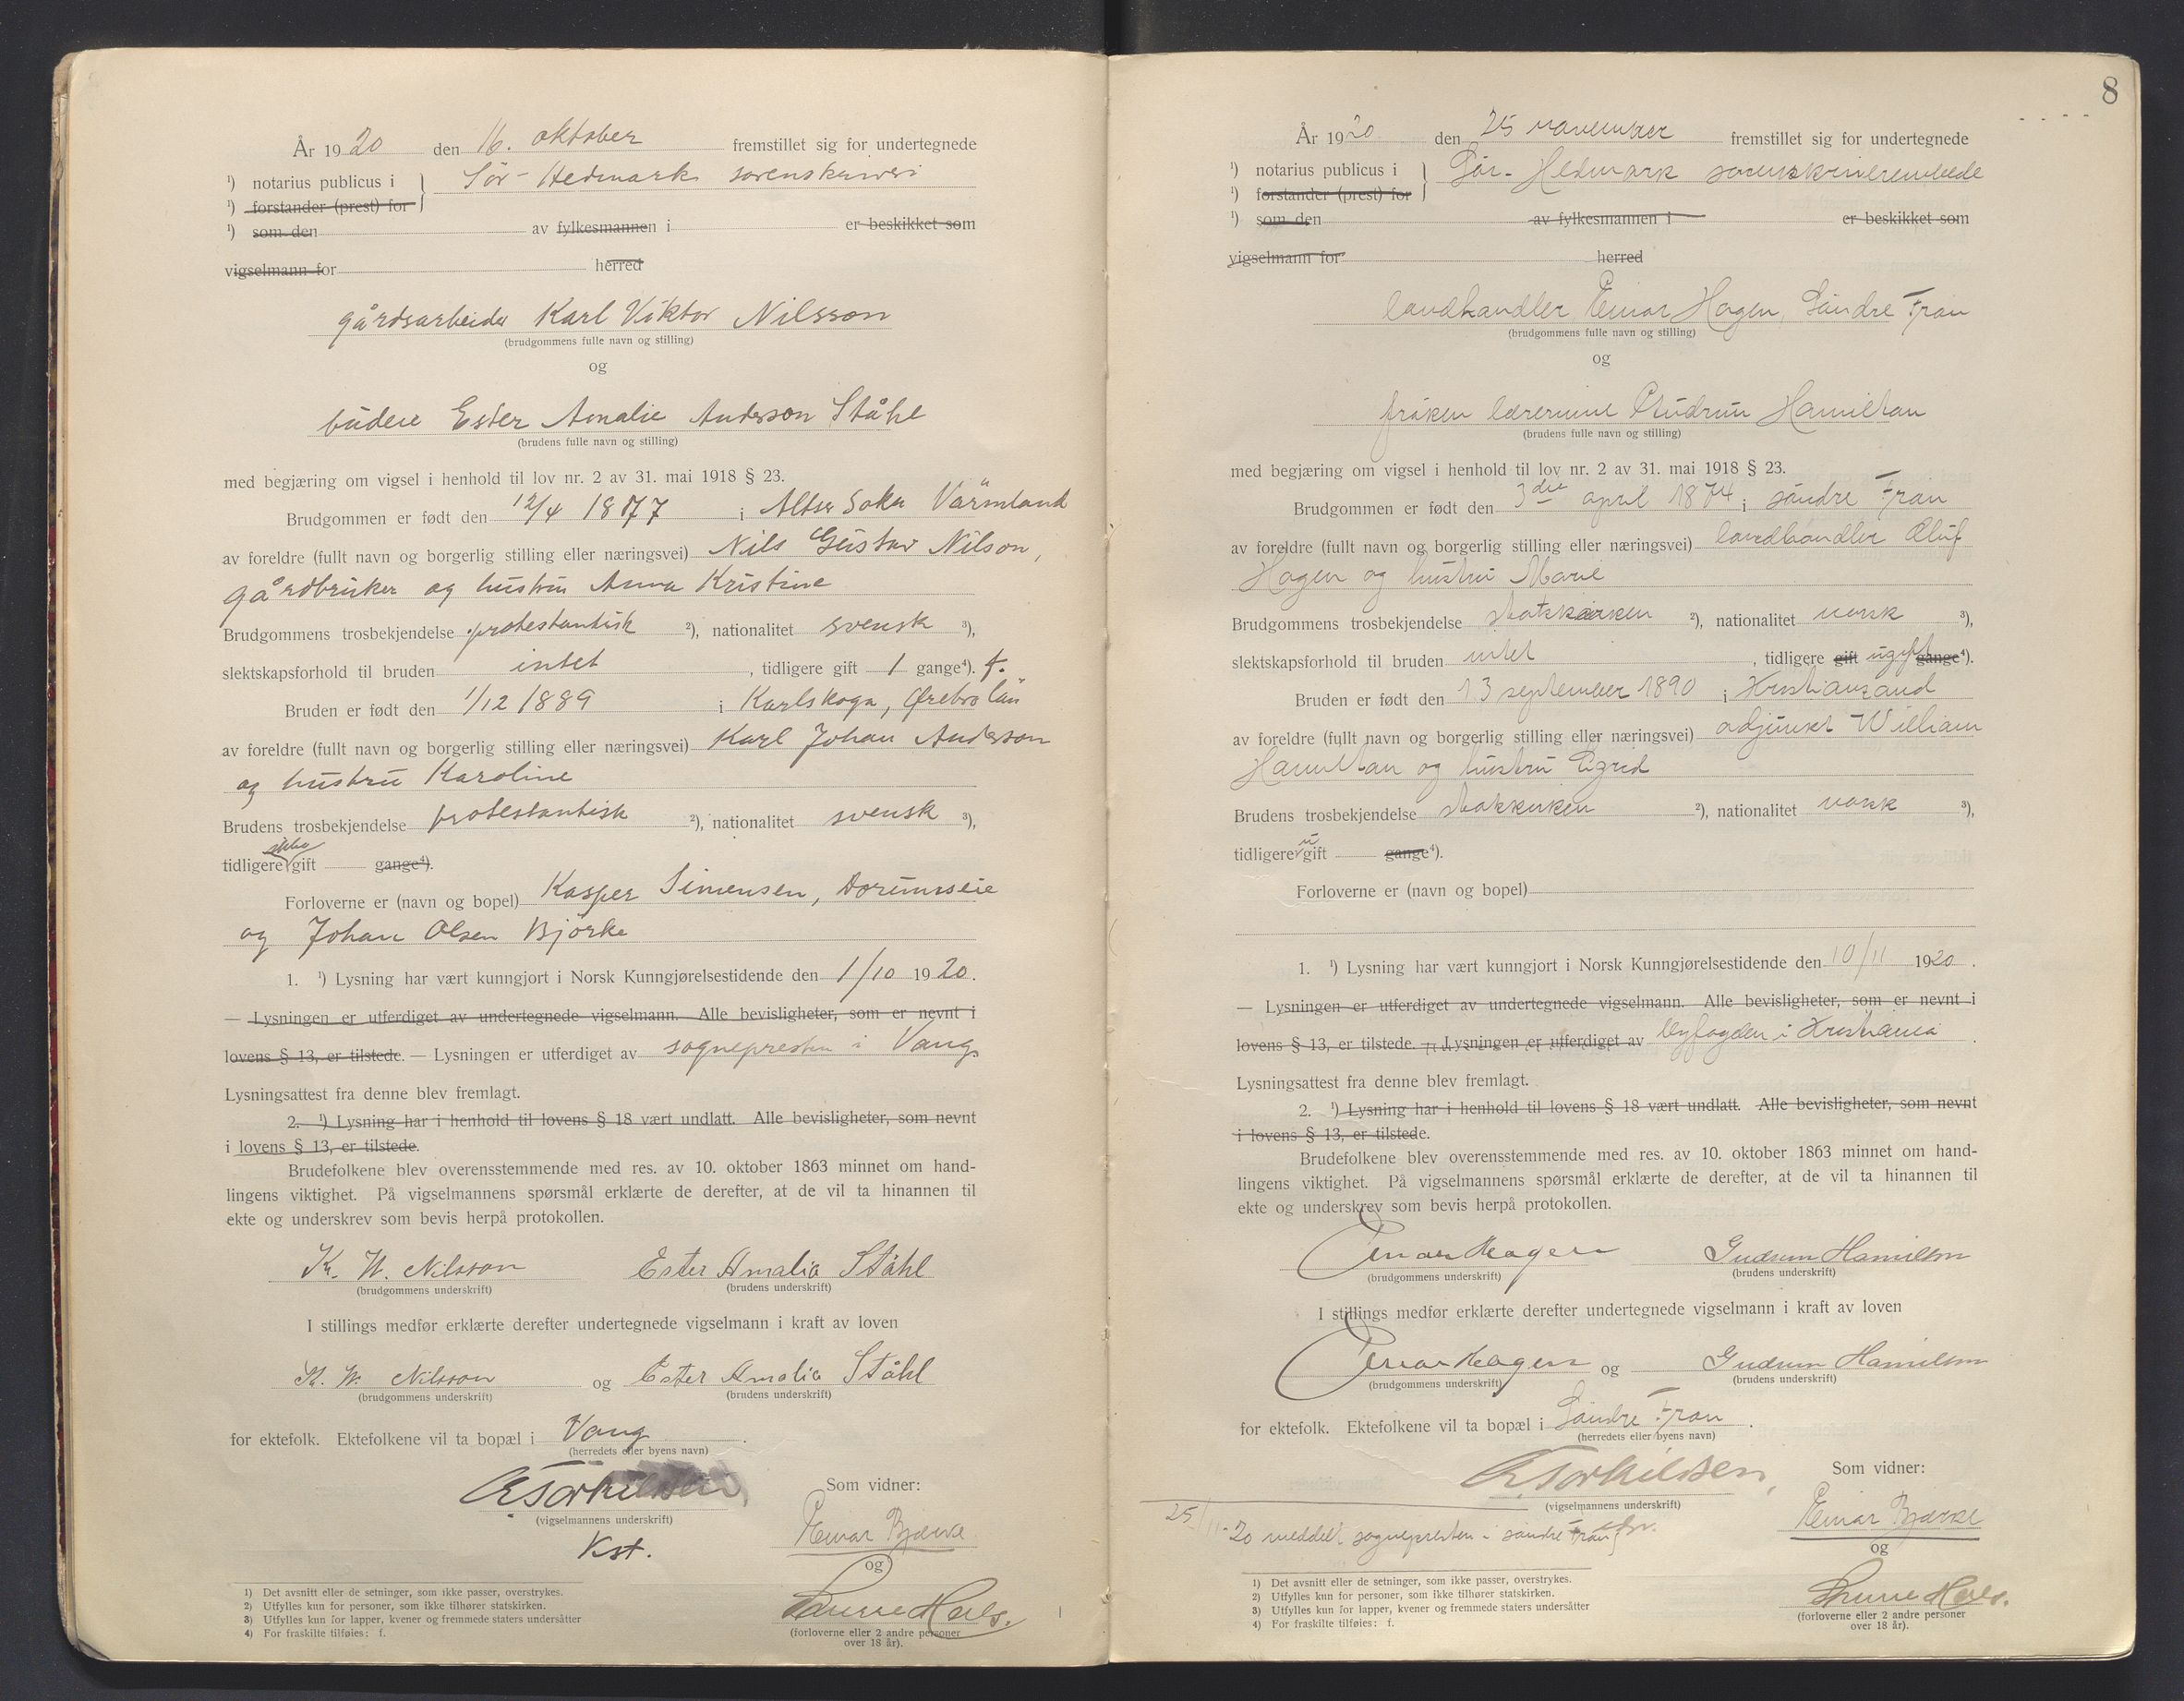 År 1920 den 16. oktober fremstillet sig for undertegnede
¹) notarius publicus i } Sör-Hedmark sorenskriveri
¹) forstander (prest) for
¹) som den av fylkesmannen i er beskikket som
vigselmann for herred
gårdsarbeider Karl Viktor Nilsson
(brudgommens fulle navn og stilling)
og
budeie Ester Amalie Anderson Ståhl
(brudens fulle navn og stilling)
med begjæring om vigsel i henhold til lov nr. 2 av 31. mai 1918 § 23.
Brudgommen er født den 12/4 1877 i Värmland
av foreldre (fullt navn og borgerlig stilling eller næringsvei) Nils Gustav Nilson,
gårdbruker og hustru Anna Kristine
Brudgommens trosbekjendelse protestantisk ²), nationalitet svensk ³),
slektskapsforhold til bruden intet, tidligere gift 1 gange⁴). f.
Bruden er født den 1/12 1889 i Karlskoga, Ørebro län
av foreldre (fullt navn og borgerlig stilling eller næringsvei) Karl Johan Anderson
og hustru Karoline
Brudens trosbekjendelse protestantisk ²), nationalitet svensk ³),
tidligere ikke gift gange⁴).
Forloverne er (navn og bopel) Kasper Simensen,
og Johan Olsen Bjørke
1. ¹) Lysning har vært kunngjort i Norsk Kunngjørelsestidende den 1/10 1920.
— Lysningen er utferdiget av undertegnede vigselmann. Alle bevisligheter, som er nevnt i
lovens § 13, er tilstede. — Lysningen er utferdiget av sognepresten i Vang.
Lysningsattest fra denne blev fremlagt.
2. ¹) Lysning har i henhold til lovens § 18 vært undlatt. Alle bevisligheter, som nevnt
i lovens § 13, er tilstede.
Brudefolkene blev overensstemmende med res. av 10. oktober 1863 minnet om hand-
lingens viktighet. På vigselmannens spørsmål erklærte de derefter, at de vil ta hinannen til
ekte og underskrev som bevis herpå protokollen.
K. W. Nilsson Ester Amalia Ståhl
(brudgommens underskrift) (brudens underskrift)
I stillings medfør erklærte derefter undertegnede vigselmann i kraft av loven
K. W. Nilsson og Ester Amalia Ståhl
(brudgommens underskrift) (brudens underskrift)
for ektefolk. Ektefolkene vil ta bopæl i Vang.
(herredets eller byens navn)
Torkildsen
(vigselmannens underskrift)
Kst.
Som vidner:
Einar Bjerke
og
(forloverne eller 2 andre personer
over 18 år).
1) Det avsnitt eller de setninger, som ikke passer, overstrykes.
2) Utfylles kun for personer, som ikke tilhører statskirken.
3) Utfylles kun for lapper, kvener og fremmede staters undersåtter
4) For fraskilte tilføies: f.
8
År 1920 den 25 november fremstillet sig for undertegnede
¹) notarius publicus i } Sör-Hedmark sorenskriverembede
¹) forstander (prest) for
¹) som den av fylkesmannen i er beskikket som
vigselmann for herred
landhandler Einar Hagen, Söndre Fron
(brudgommens fulle navn og stilling)
og
fröken lærerinne Gudrun Hamilton
(brudens fulle navn og stilling)
med begjæring om vigsel i henhold til lov nr. 2 av 31. mai 1918 § 23.
Brudgommen er født den 3die april 1874 i söndre Fron
av foreldre (fullt navn og borgerlig stilling eller næringsvei) landhandler Oluf
Hagen og hustru Marie
Brudgommens trosbekjendelse statskirken ²), nationalitet norsk ³),
slektskapsforhold til bruden intet, tidligere gift ugift gange⁴).
Bruden er født den 13 september 1890 i Kristianssand
av foreldre (fullt navn og borgerlig stilling eller næringsvei) adjunkt William
Hamilton og hustru Sigrid
Brudens trosbekjendelse statskirken ²), nationalitet norsk ³),
tidligere u gift gange⁴).
Forloverne er (navn og bopel)
1. ¹) Lysning har vært kunngjort i Norsk Kunngjørelsestidende den 10/11 1920.
— Lysningen er utferdiget av undertegnede vigselmann. Alle bevisligheter, som er nevnt i
lovens § 13, er tilstede. — Lysningen er utferdiget av byfogden i Kristiania.
Lysningsattest fra denne blev fremlagt.
2. ¹) Lysning har i henhold til lovens § 18 vært undlatt. Alle bevisligheter, som nevnt
i lovens § 13, er tilstede.
Brudefolkene blev overensstemmende med res. av 10. oktober 1863 minnet om hand-
lingens viktighet. På vigselmannens spørsmål erklærte de derefter, at de vil ta hinannen til
ekte og underskrev som bevis herpå protokollen.
Einar Hagen Gudrun Hamilton
(brudgommens underskrift) (brudens underskrift)
I stillings medfør erklærte derefter undertegnede vigselmann i kraft av loven
Einar Hagen og Gudrun Hamilton
(brudgommens underskrift) (brudens underskrift)
for ektefolk. Ektefolkene vil ta bopæl i Söndre Fron.
(herredets eller byens navn)
Torkildsen
(vigselmannens underskrift)
25/11-20 meddelt sognepresten i söndre Fron
Som vidner:
Einar Bjerke
og
(forloverne eller 2 andre personer
over 18 år).
1) Det avsnitt eller de setninger, som ikke passer, overstrykes.
2) Utfylles kun for personer, som ikke tilhører statskirken.
3) Utfylles kun for lapper, kvener og fremmede staters undersåtter
4) For fraskilte tilføies: f.